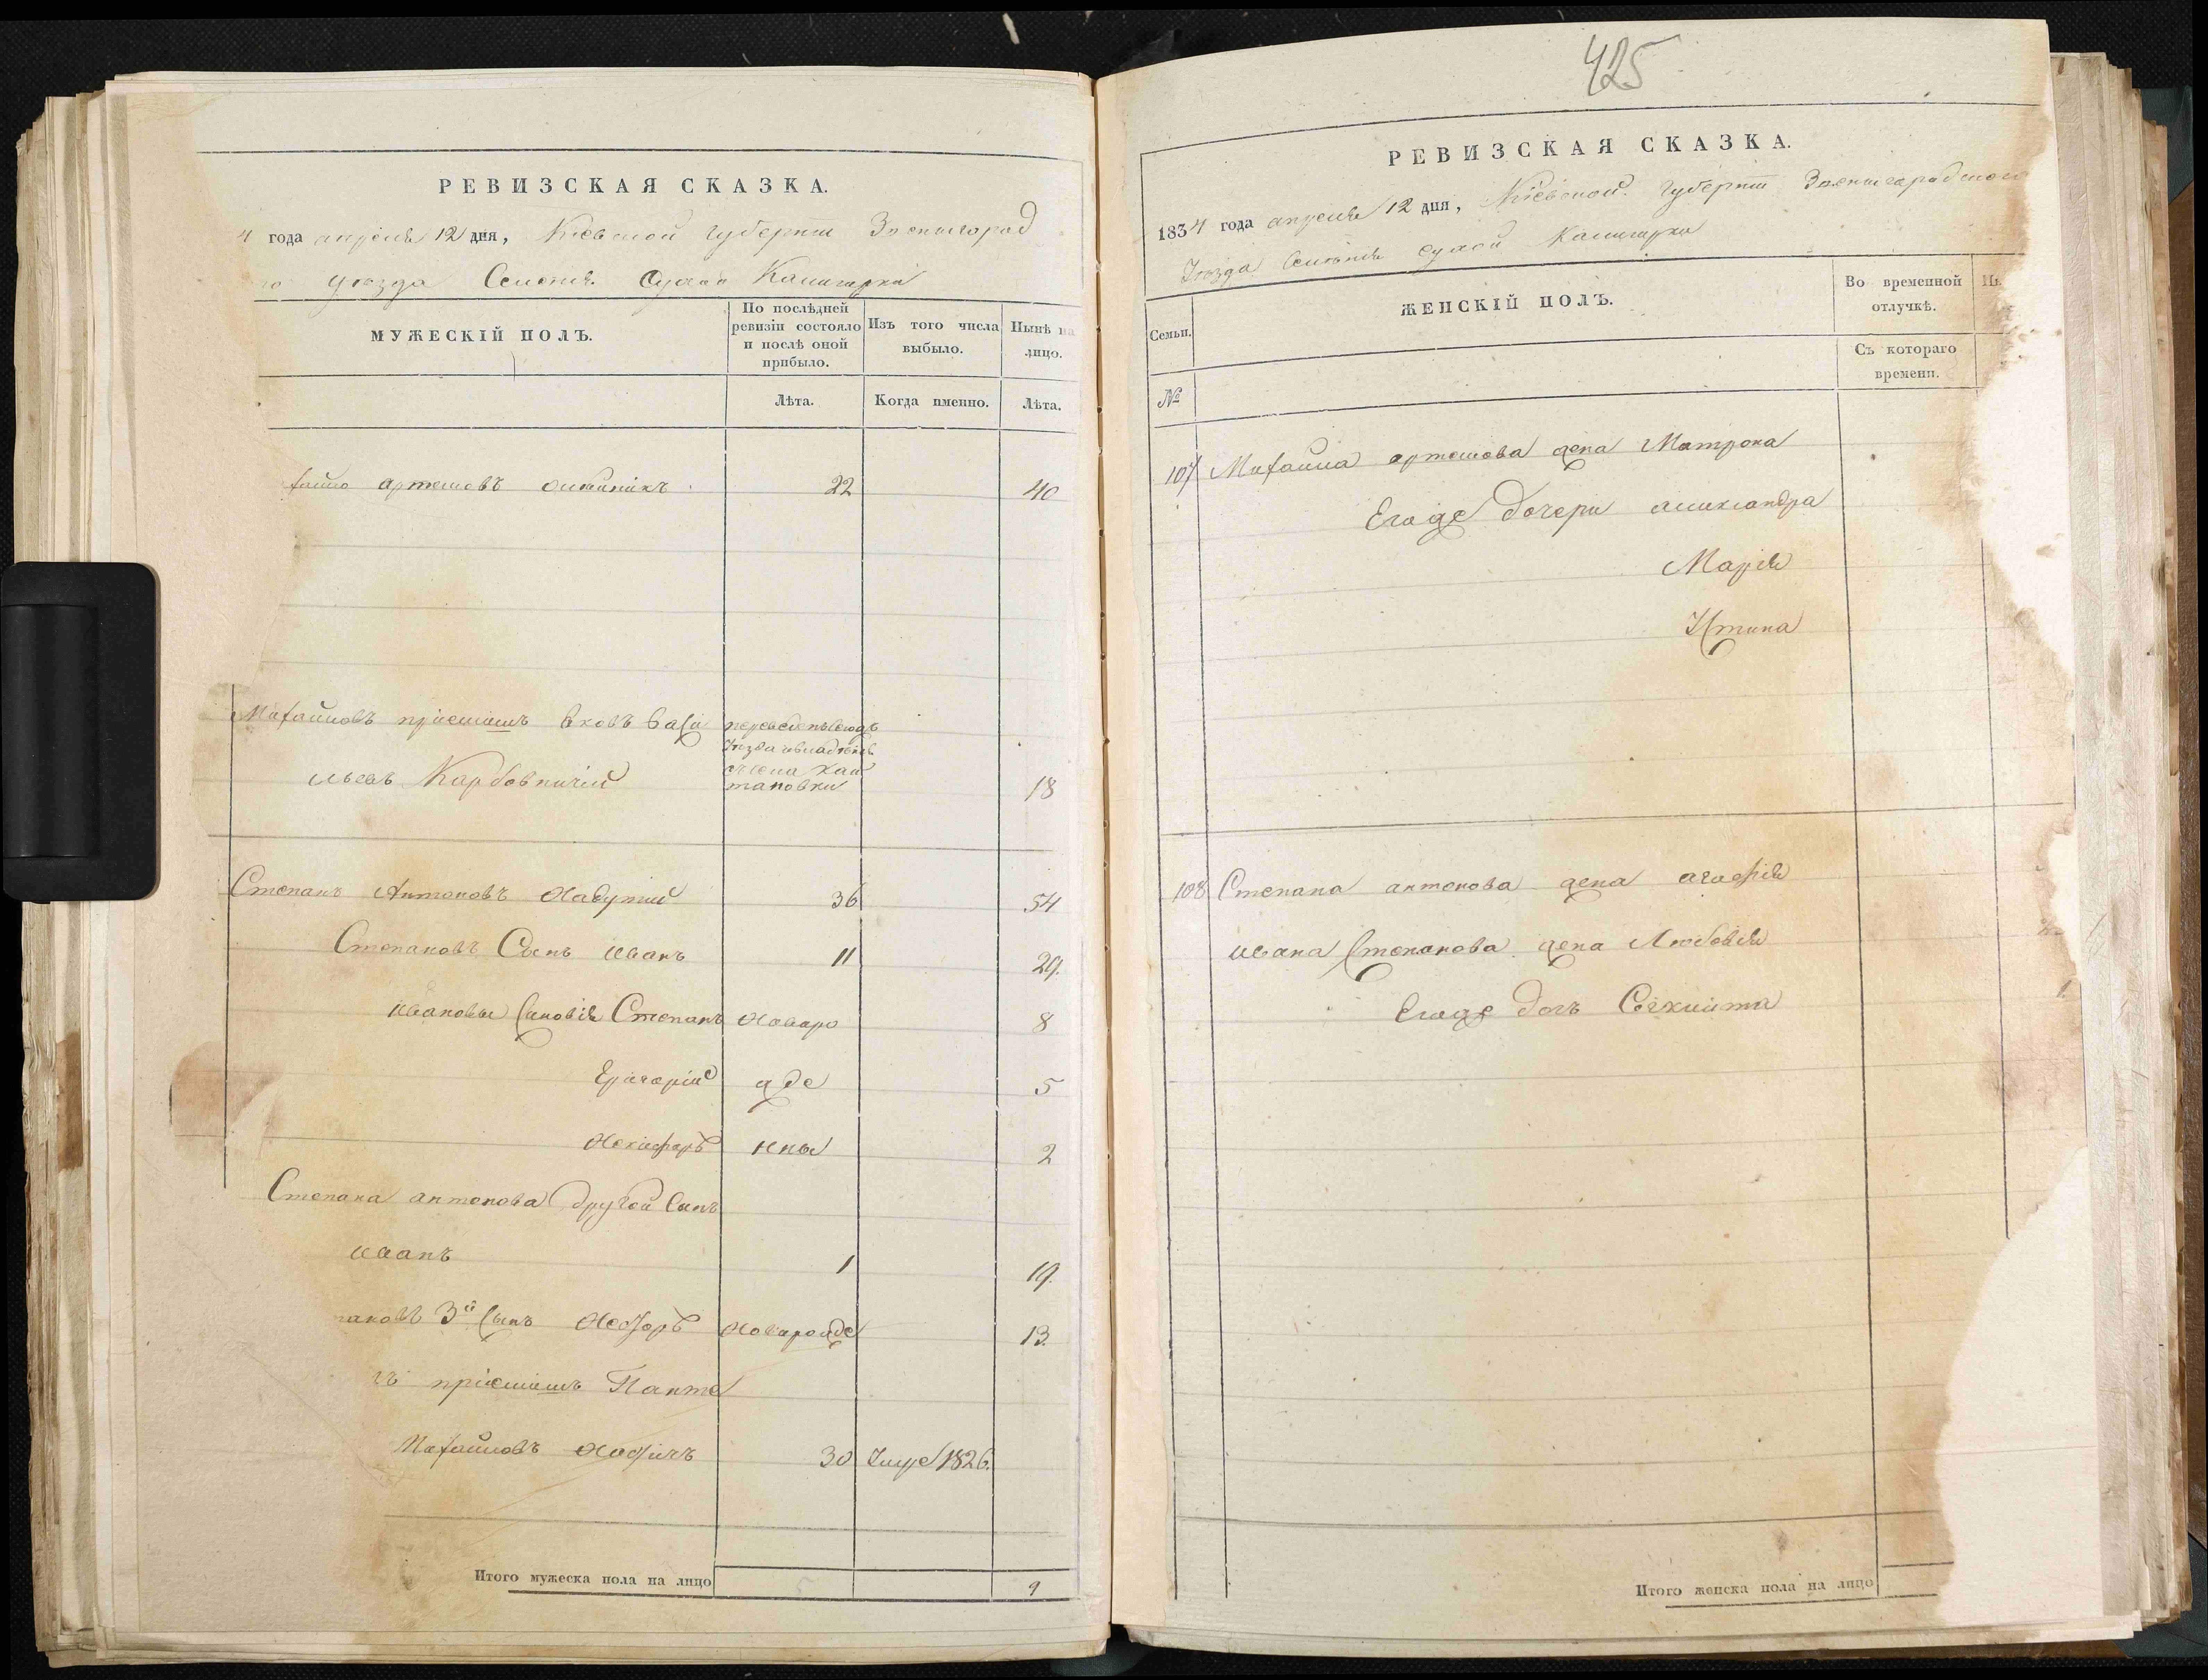 РЕВИЗСКАЯ СКАЗКА.
4 года апреля 12 дня, Кіевской губерніи Звенигород
го уезда Селенія Сухой Калигорки
МУЖЕСКІЙ ПОЛЪ.
По послѣдней ревизіи состояло и послѣ оной прибыло.
Изъ того числа выбыло.
Нынѣ на лицо.
Лѣта.
Когда именно.
Лѣта.
хайло артемовъ 22 40
Михайловъ пріемишъ Яковъ Васи
льевъ 18
Степанъ Антоновъ 36 54
Степановъ Сынъ иванъ 11 29.
ивановы Синовія Степанъ новаро 8
Григорій жде 5
Некифоръ нны 2
Степана антонова другой Сынъ
иванъ 1 19.
пановъ 3й Сынъ Новорожде 13.
въ пріемишъ Панте
Михайловъ 30 Умре 1826.
Итого мужеска пола на лицо 9
425
РЕВИЗСКАЯ СКАЗКА.
1834 года апреля 12 дня, Кіевской губерніи Звенигородского
Уезда Селенія Сухой Калигорки
Семьи.
ЖЕНСКІЙ ПОЛЪ.
Во временной отлучкѣ.
Съ котораго времени.
№
107 Михайла артемова жена Матрона
Егоже дочери александра
Марія
Устина
108 Степана антонова жена агафія
ивана Степанова жена Любовія
Егоже дочъ
Итого женска пола на лицо